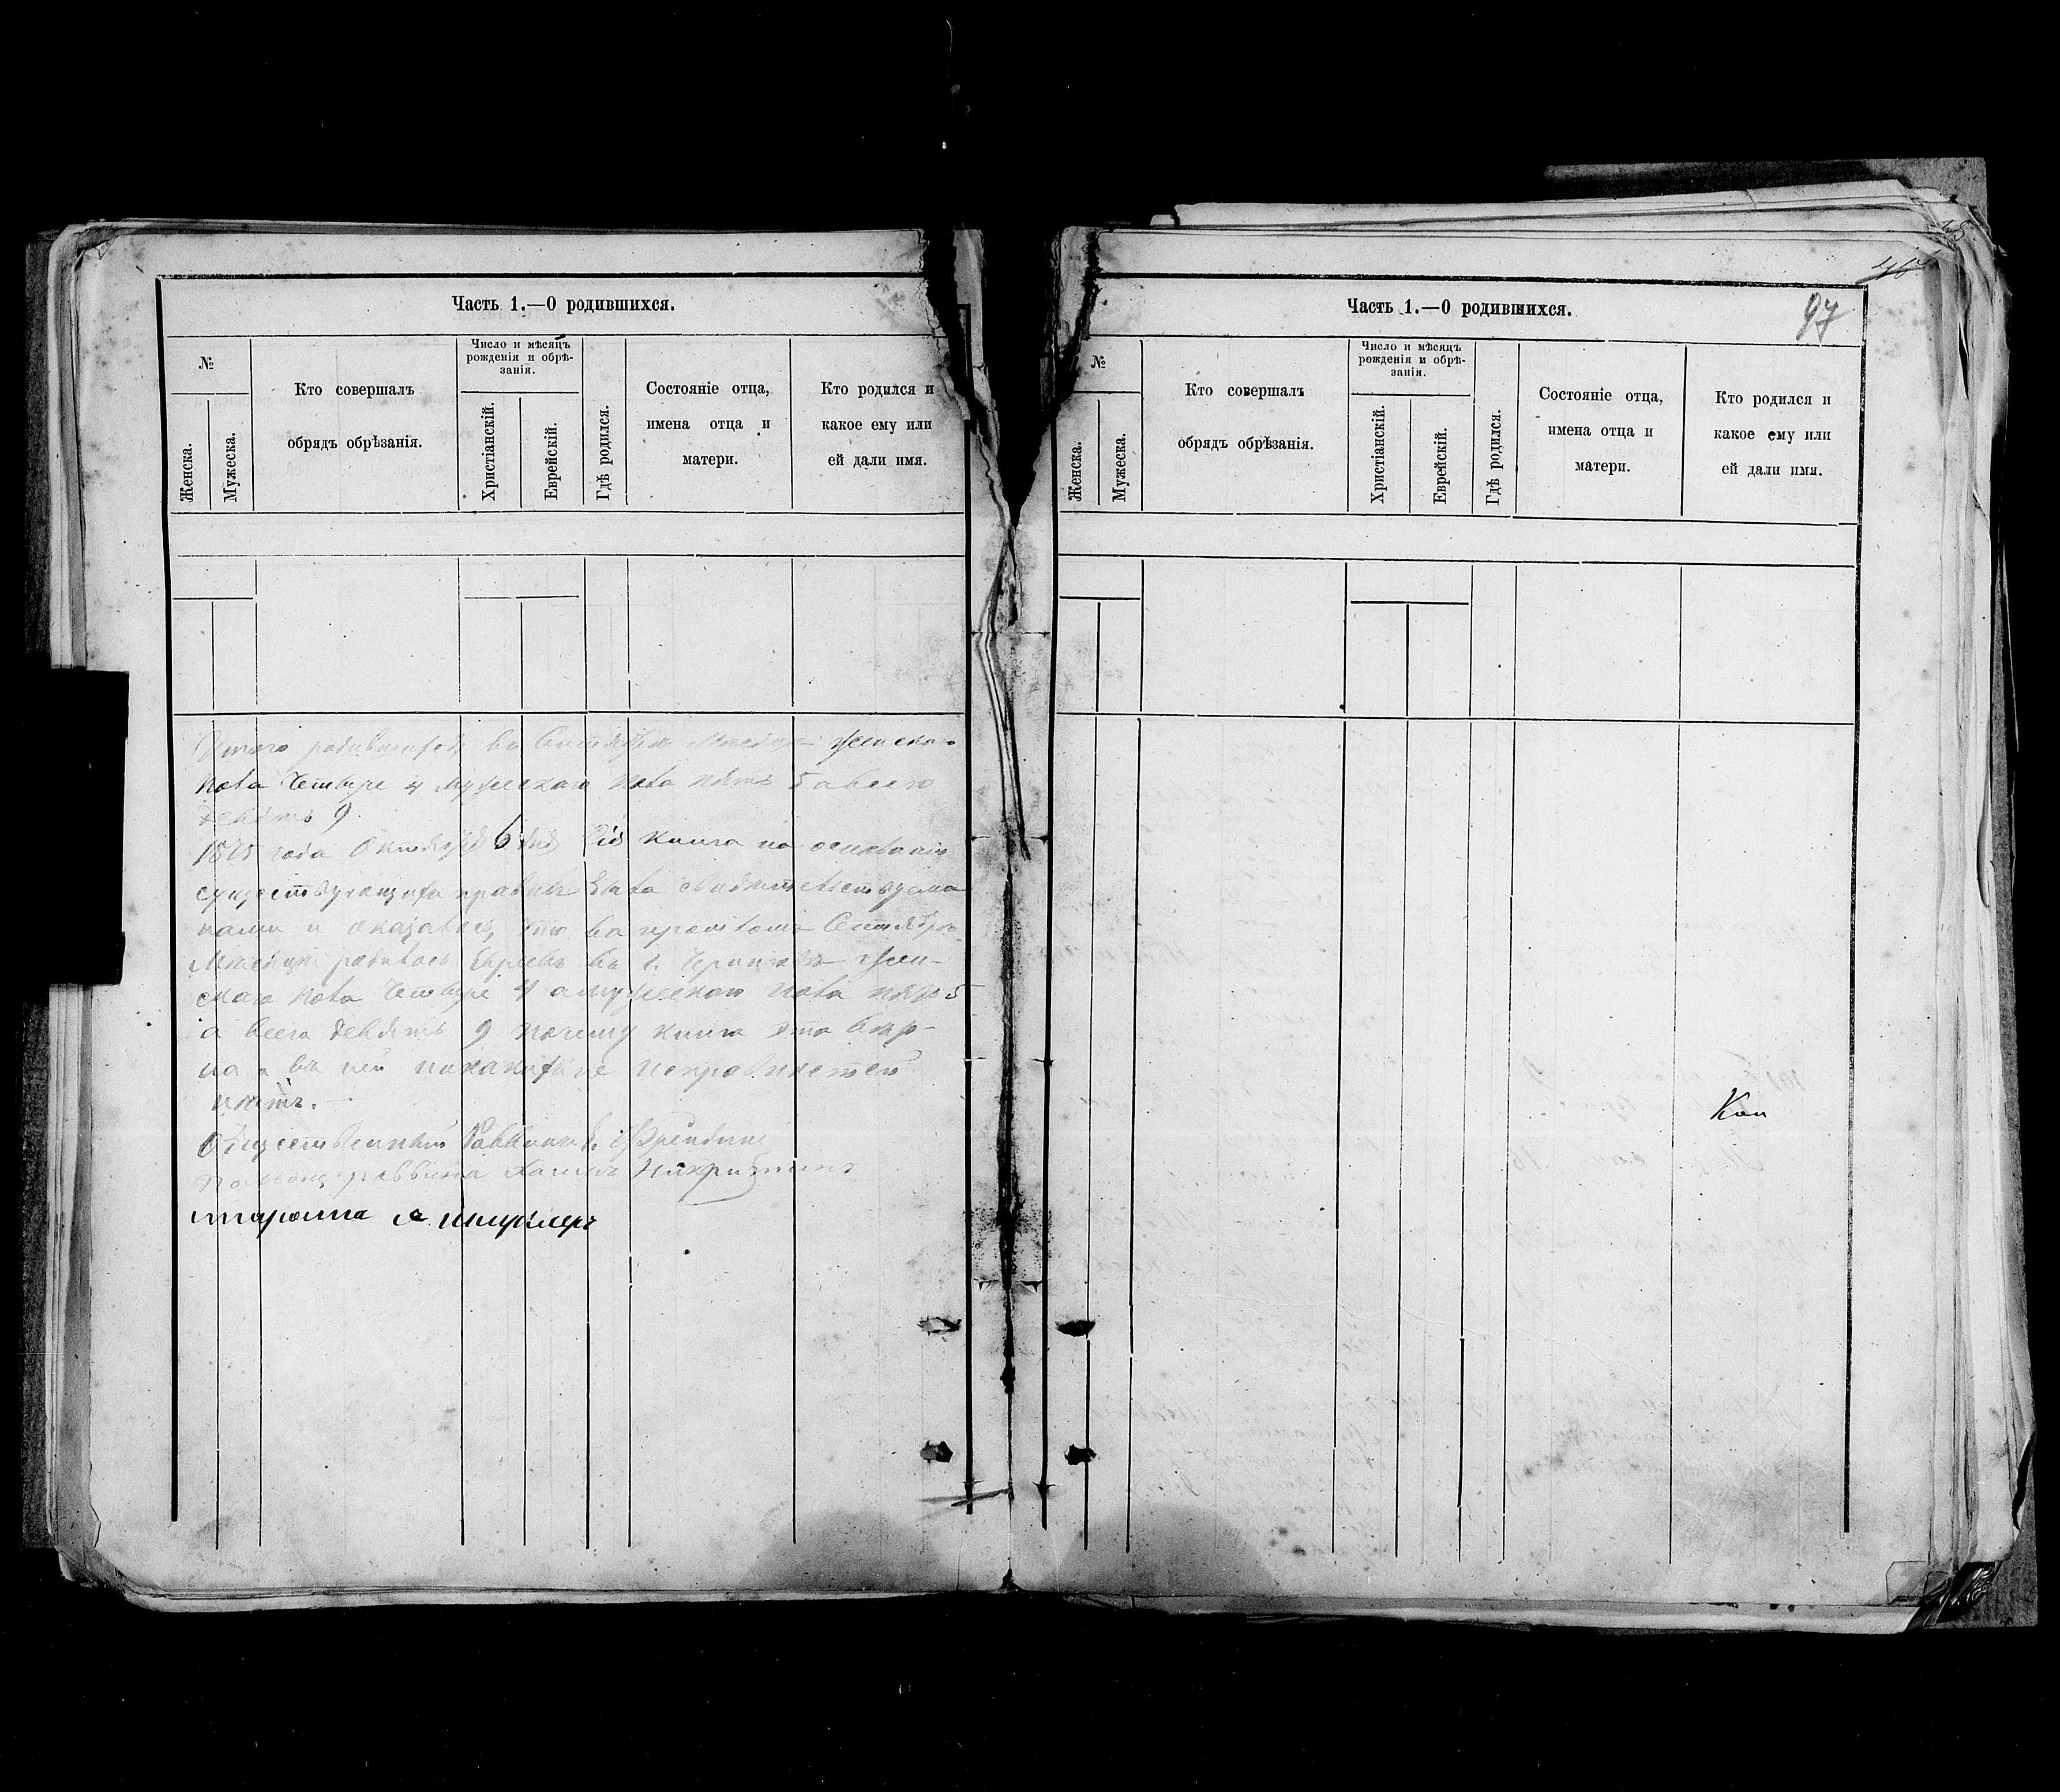 Часть 1.—О родившихся.
№
Женска.
Мужеска.
Кто совершалъ
обрядъ обрѣзанія.
Число и мѣсяцъ
рожденія и обрѣ-
занія.
Христіанскій.
Еврейскій.
Гдѣ родился.
Состояніе отца,
имена отца и
матери.
Кто родился и
какое ему или
ей дали имя.
Итого родившихся въ Сентябрѣ Мѣсяцѣ женска-
пола четыре 4 мужескаго пола пять 5 а всего
девять 9.
1875 года Октября 6 дня Сія книга на основаніи
существующихъ правилъ была свидѣтельствуема
нами и оказалось, что въ прошломъ Сентябрѣ
Мѣсяцѣ родилось Евреевъ въ г. Черниговѣ жен-
скаго пола четыре 4 а мужескаго пола пять 5
а всего девять 9 почему книга эта вѣр-
на и въ ней никакихъ неправильностей
нѣтъ.
Общественный Раввинъ
раввина
староста
Часть 1.—О родившихся.
97
№
Женска.
Мужеска.
Кто совершалъ
обрядъ обрѣзанія.
Число и мѣсяцъ
рожденія и обрѣ-
занія.
Христіанскій.
Еврейскій.
Гдѣ родился.
Состояніе отца,
имена отца и
матери.
Кто родился и
какое ему или
ей дали имя.